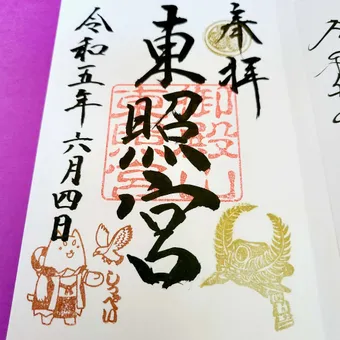 奉拝
東照宮
御殿山
東照宮
令和五年六月四日
しっぺい